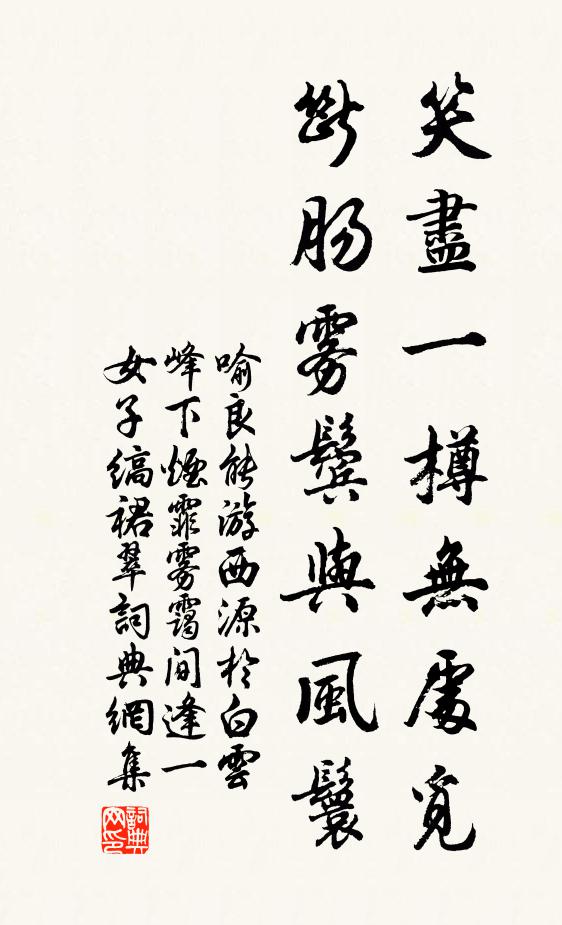 笑盡一樽無處覓
斷腸霧鬢與風鬟
喻良能游西源於白雲
峰下煙霏霧靄間逢一
女子縞裙翠詞典網集
詞典网印